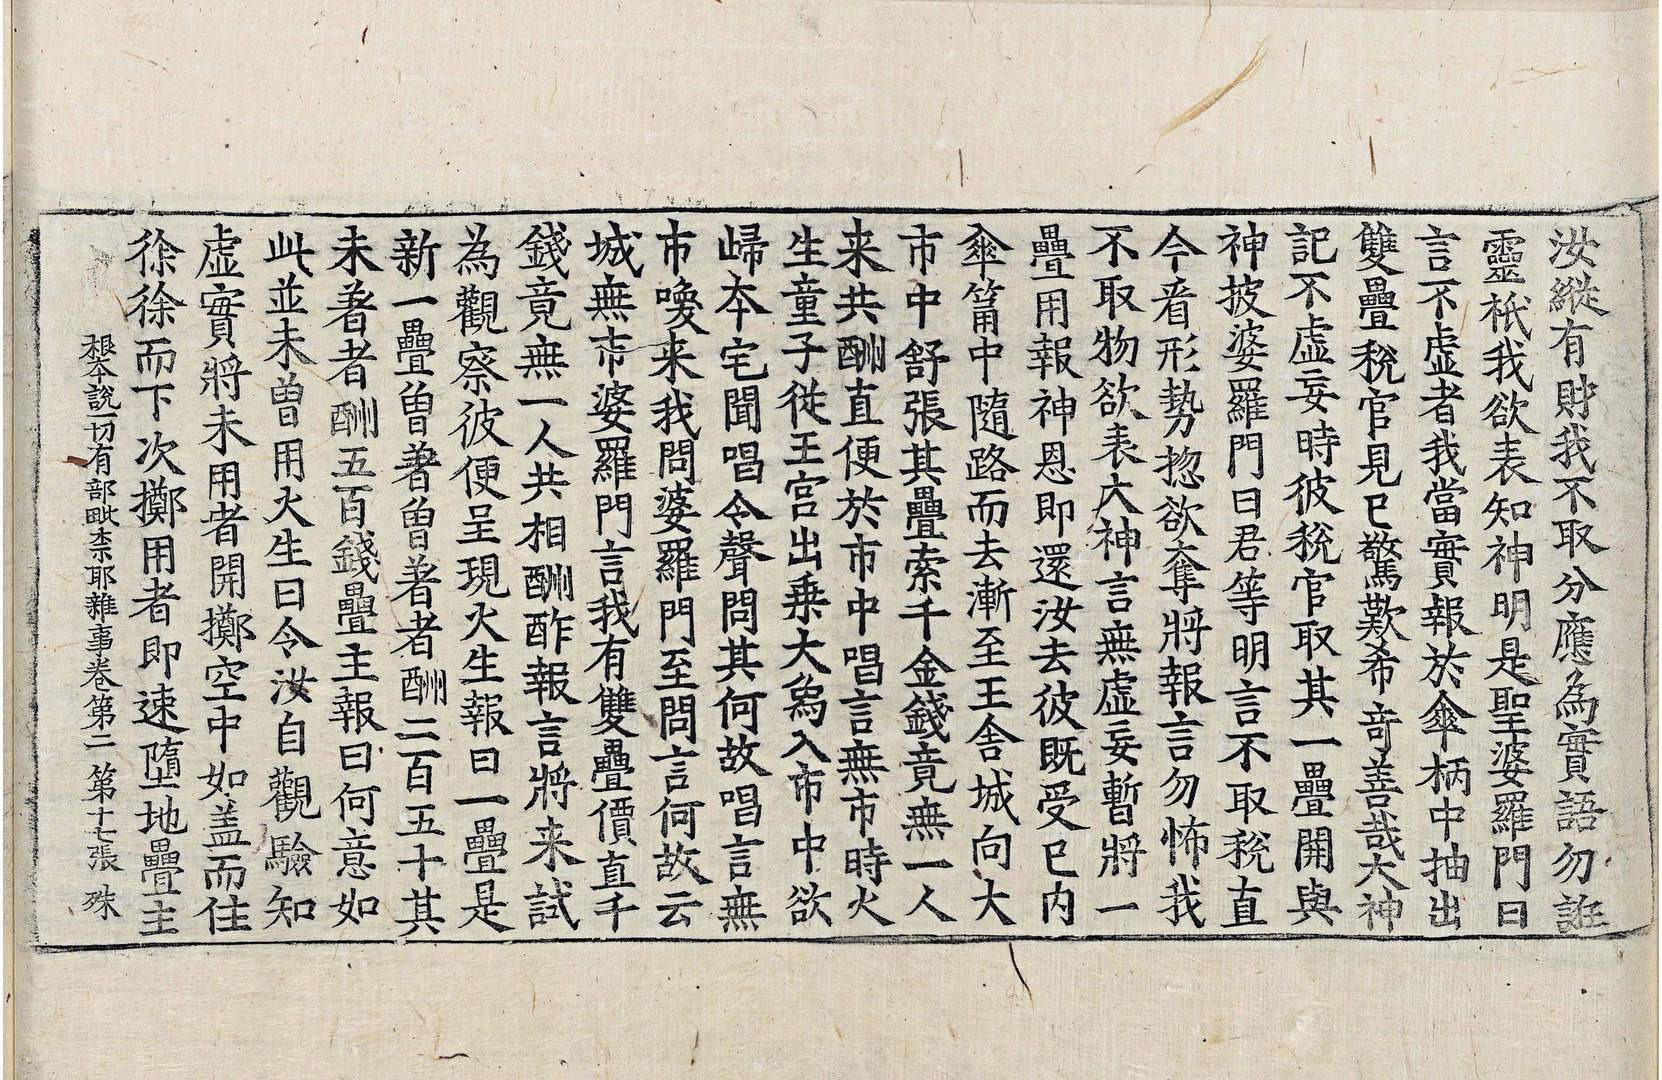 汝縱有財我不取分應為實語勿誑
靈祇我欲表知神明是聖婆羅門曰
言不虛者我當實報於傘柄中抽出
雙疊稅官見已驚歎希奇善哉大神
記不虛妄時彼稅官取其一疊開與
神披婆羅門曰君等明言不取稅直
今看形勢惣欲奪將報言勿怖我
不取物欲表大神言無虛妄暫將一
疊用報神恩即還汝去彼既受已內
傘筩中隨路而去漸至王舍城向大
市中舒張其疊索千金錢竟無一人
来共酬直便於市中唱言無市時火
生童子從王宮出乗大象入市中欲
歸本宅聞唱令聲問其何故唱言無
市喚来我問婆羅門至問言何故云
城無市婆羅門言我有雙疊價直千
錢竟無一人共相酬酢報言將来試
為觀察彼便呈現火生報曰一疊是
新一疊曾著曾著者酬二百五十其
未著者酬五百錢疊主報曰何意如
此並未曾用火生曰令汝自觀驗知
虛實將未用者開擲空中如盖而住
徐徐而下次擲用者即速墮地疊主
根本說一切有部毗柰耶雜事卷第二 第十七張 殊